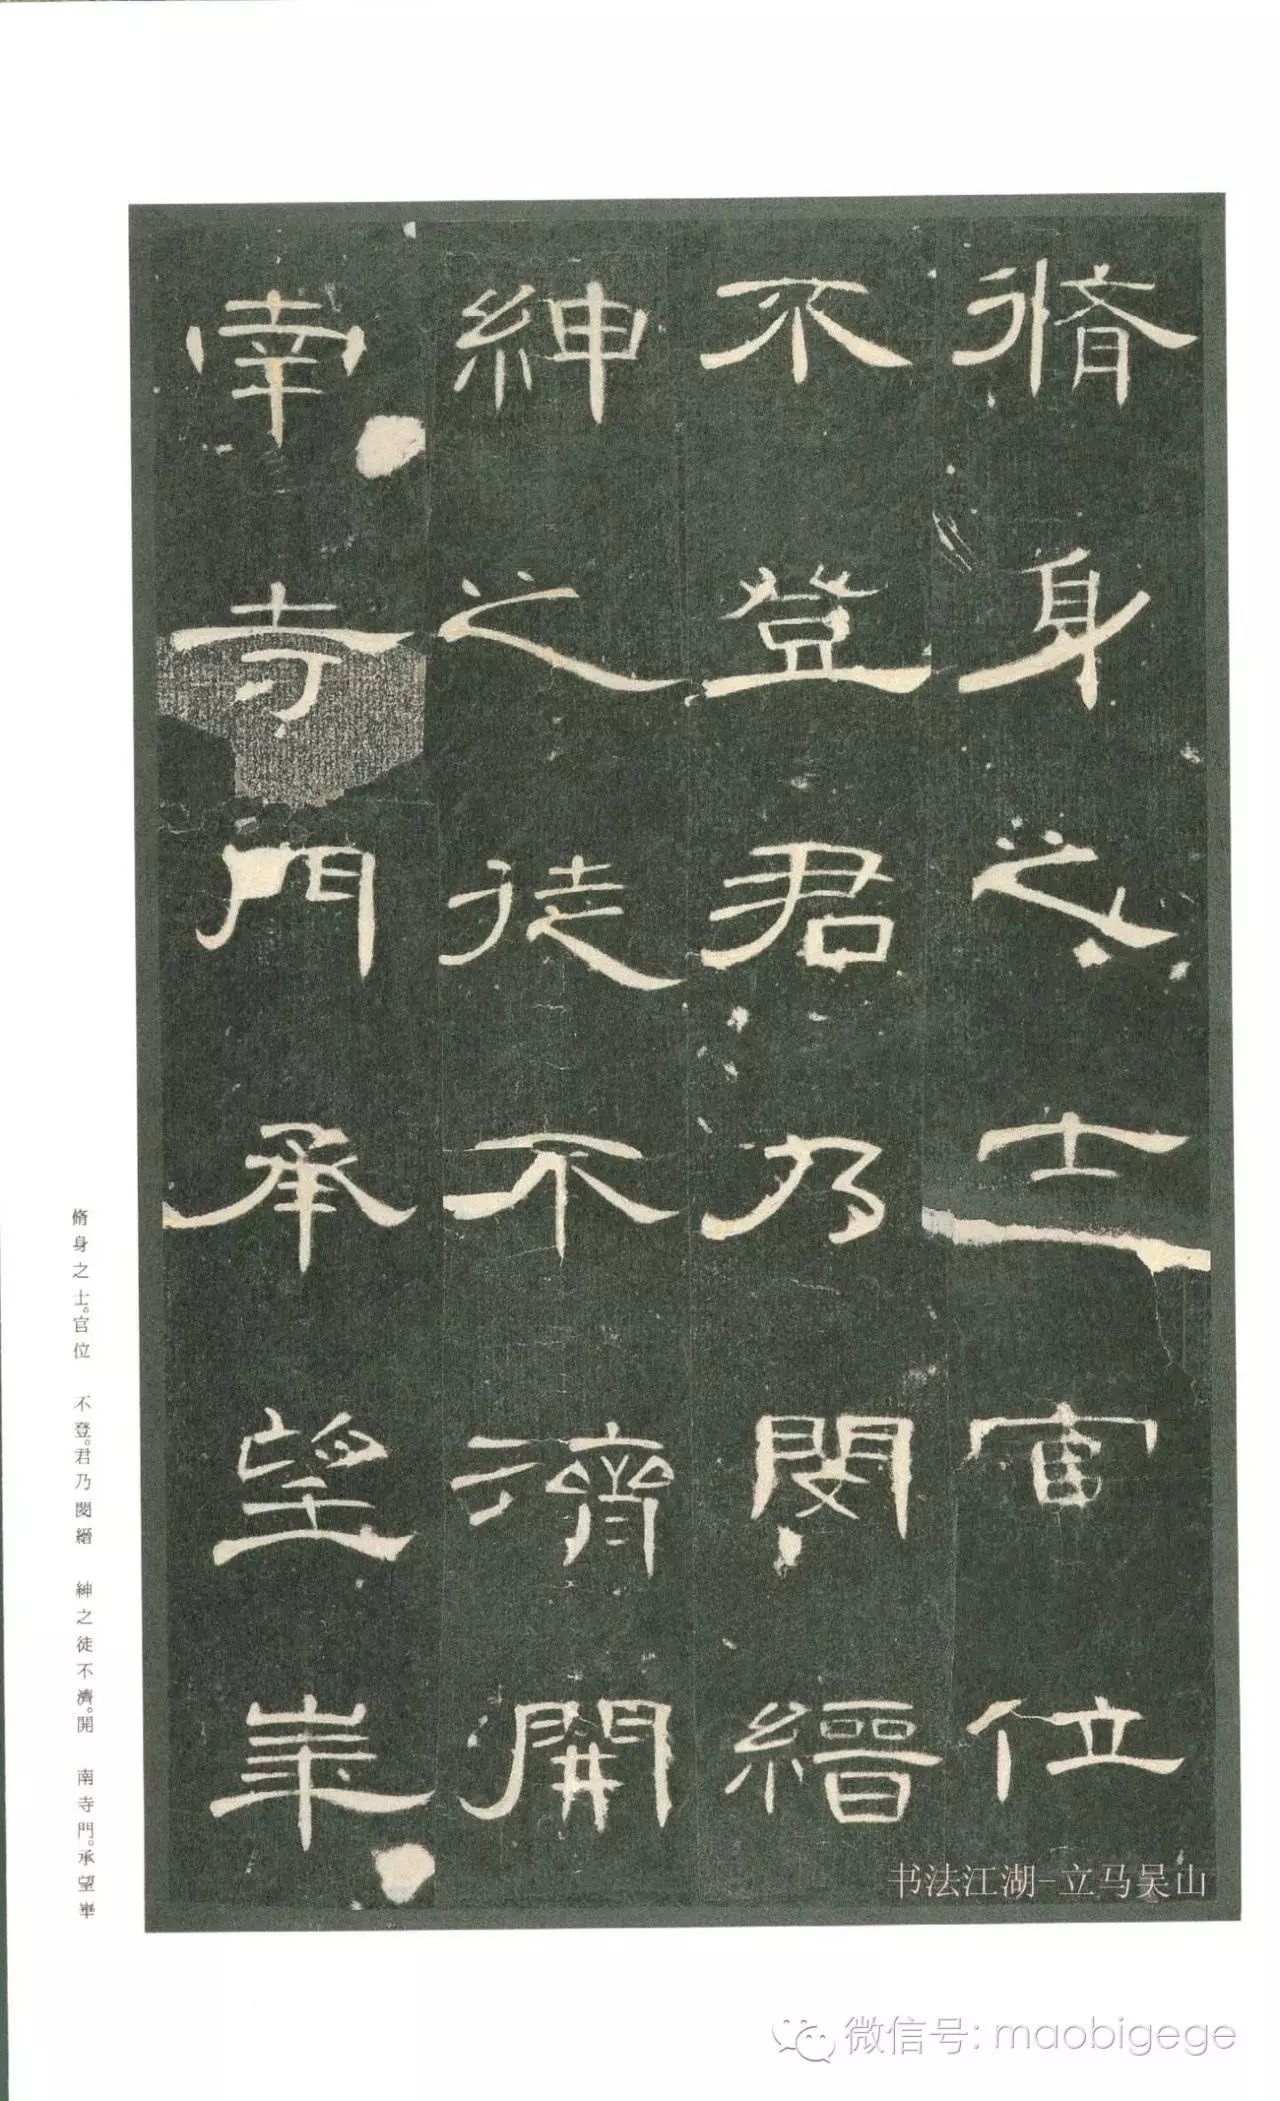 脩身之士官位
不登君乃閔縉
紳之徒不濟開
南寺門承望崋
脩身之士。官位　不登。君乃閔縉　紳之徒不濟。開　南寺門。承望崋
书法江湖-立马吴山
微信号: maobigege